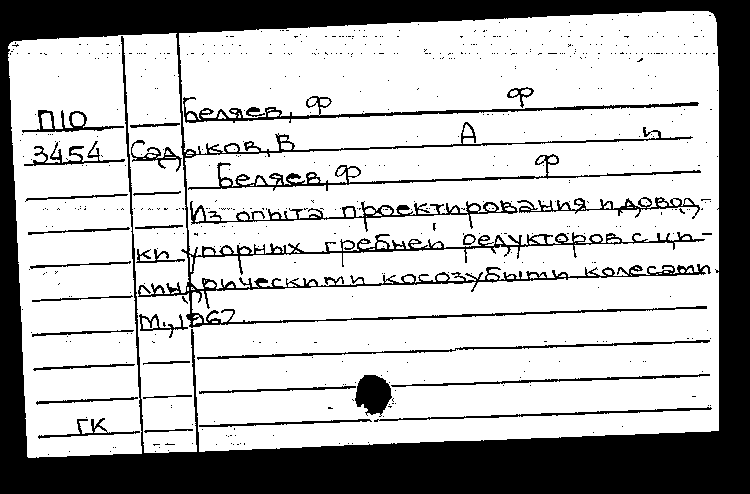 Беляев, Ф Ф
П10
3454 Садыков, В А п
Беляев, Ф Ф
Из опыта проектирования и довод-
ки упорных гребней редукторов с ци-
линдрическими косозубыми колесами.
М., 1967.
ГК